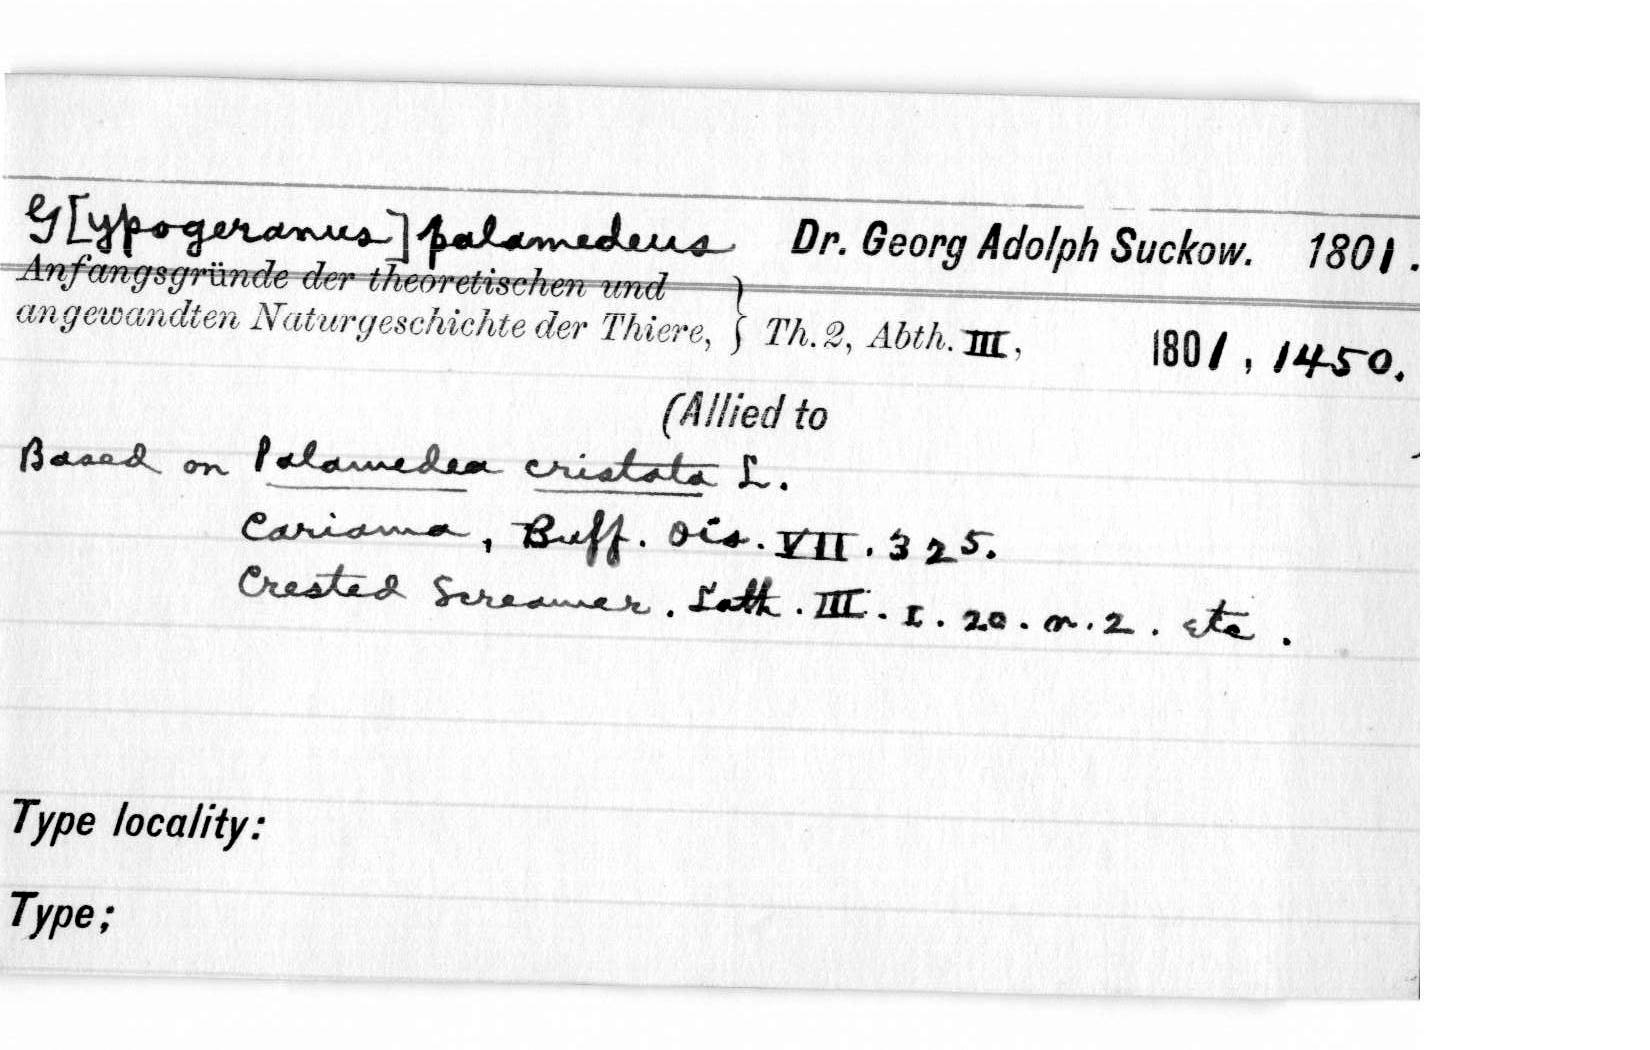 G[ypogeranus] palamedeus Dr. Georg Adolph Suckow. 1801.
Anfangsgründe der theoretischen und
angewandten Naturgeschichte der Thiere, } Th. 2, Abth. III, 1801, 1450.
(Allied to
Based on Palamedea cristata L.
Cariama, Buff. Ois. VII. 325.
Crested Screamer. Lath. III. I. 20. n. 2. etc.
Type locality:
Type;